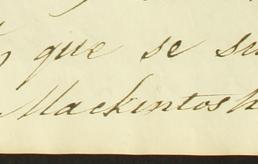 que se su
Mackintosh